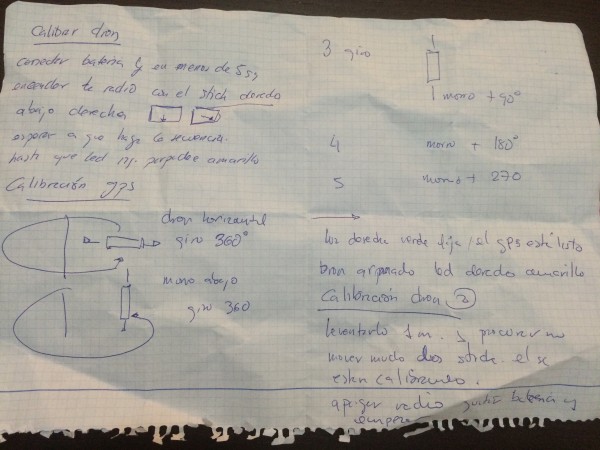 Calibrar dron
conectar batería y en menos de 5 sg
encender la radio con el stick derecho
abajo derecha
esperar a que haga la secuencia.
hasta que led amarillo
Calibración gps
dron horizontal
giro 360°
morro abajo
giro 360
3 giro
morro + 90°
4 morro + 180°
5 morro + 270
luz derecha verde fija / el gps está listo
dron led derecho amarillo
Calibración dron 2
levantarlo 1 m. y procurar no
mover mucho los sticks. el se
están calibrando.
apagar radio quitar batería y
empezar